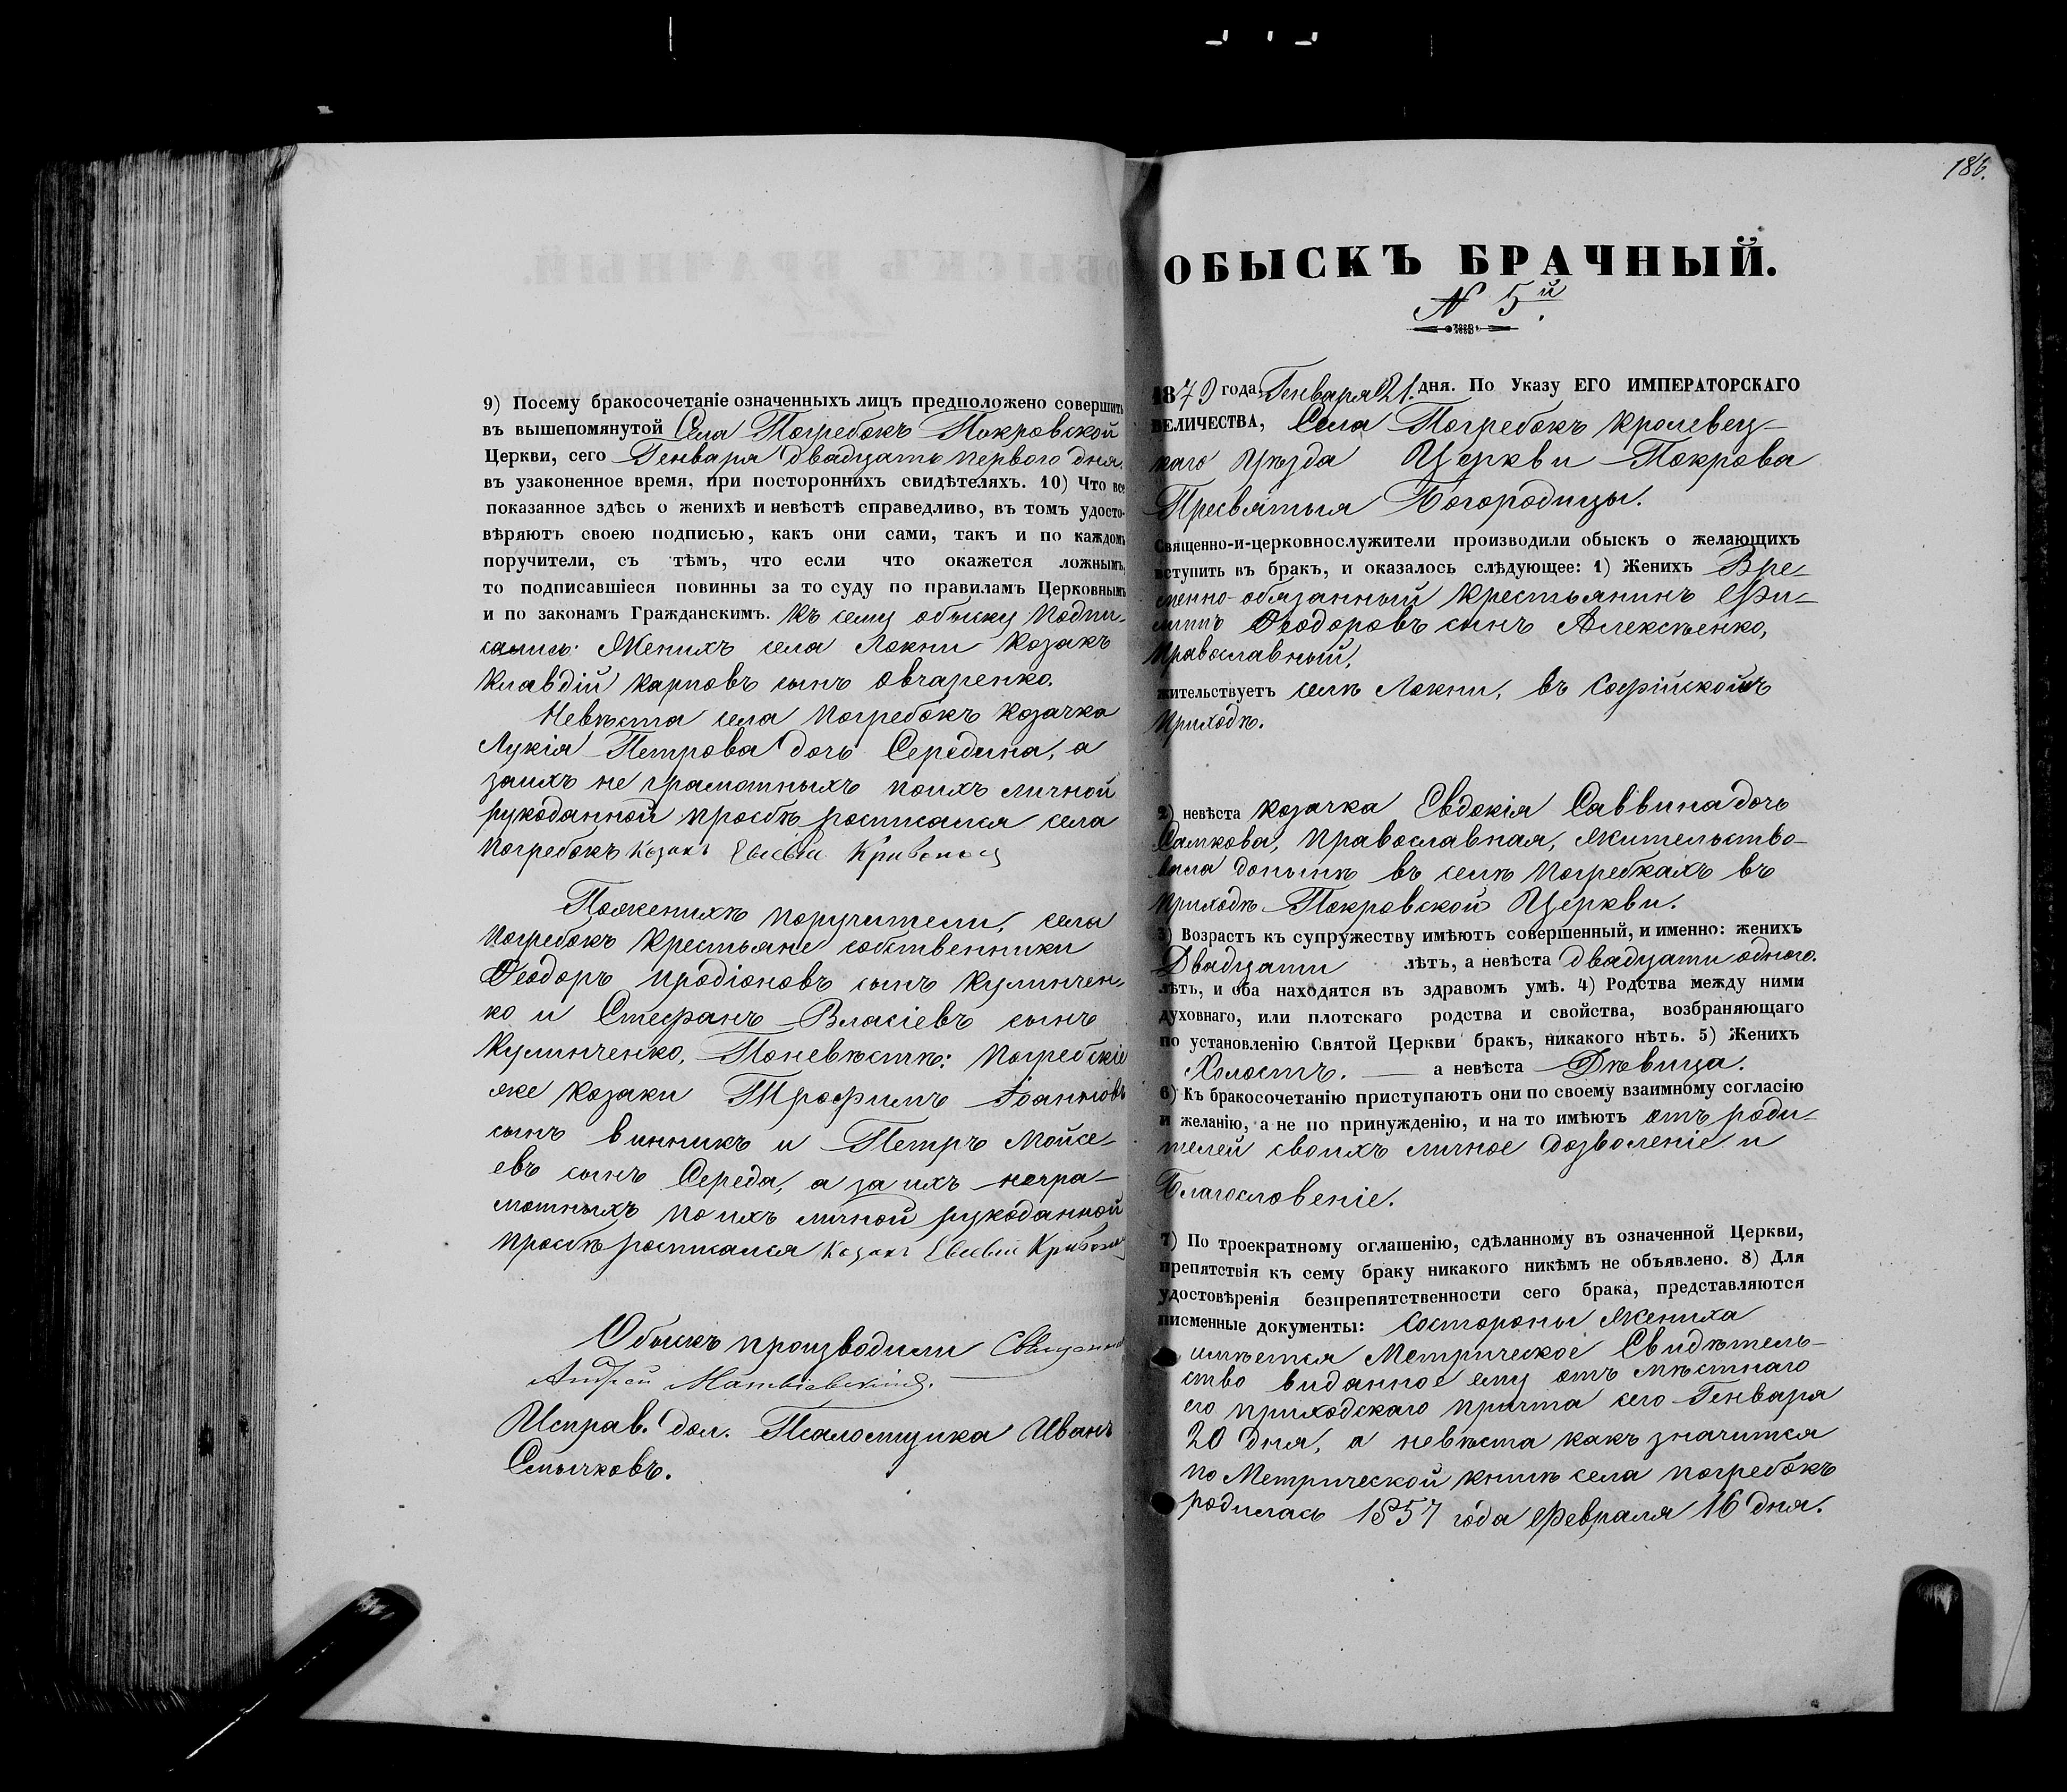 9) Посему бракосочетаніе означенныхъ лицъ предположено совершить
въ вышепомянутой Села Погребокъ Покровской
Церкви, сего Генваря двадцать перваго дня
въ узаконенное время, при постороннихъ свидѣтеляхъ. 10) Что все
показанное здѣсь о женихѣ и невѣстѣ справедливо, въ томъ удосто-
вѣряютъ своею подписью, какъ они сами, такъ и по каждомъ
поручители, съ тѣмъ, что если что окажется ложнымъ,
то подписавшіеся повинны за то суду по правиламъ Церковнымъ
и по законамъ Гражданскимъ. Къ сему обыску подпи-
сались: Женихъ села Локни козакъ
Клавдій Карповъ сынъ Овчаренко.
Невѣста села Погребокъ козачка
Лукія Петрова дочь Середина, а
заихъ не грамотныхъ поихъ личной
рукоданной просьбѣ росписался села
Погребокъ Козакъ Евсевій
Поженихѣ поручители, села
Погребокъ крестьяне собственники
Феодоръ Иродіоновъ сынъ Кулинчен-
ко и Стефанъ Власіевъ сынъ
Кулинченко, Поневѣстѣ: Погребскіе
же козаки Трофимъ Іоанновъ
сынъ Винникъ и Петръ Мойсе-
евъ сынъ Середа, а за ихъ негра-
мотныхъ по ихъ личной рукоданной
просьбѣ росписался Козакъ Евсевій
Обыскъ производили Священникъ
Андрей Матвіевскій.
Исправ. дол. Псаломщика Иванъ
Смычковъ.
186.
ОБЫСКЪ БРАЧНЫЙ.
N 5й.
1879 года, Генваря 21. дня. По Указу ЕГО ИМПЕРАТОРСКАГО
ВЕЛИЧЕСТВА, Села Погребокъ Кролевец-
каго Уѣзда Церкви Покрова
Пресвятыя Богородицы.
Священно-и-церковнослужители производили обыскъ о желающихъ
вступить въ бракъ, и оказалось слѣдующее: 1) Женихъ Вре-
менно-обязанный крестьянинъ Фи-
липъ Феодоровъ сынъ Алексѣенко,
Православный,
жительствуетъ селѣ Локни, въ Софійскомъ
Приходѣ.
2) невѣста козачка Евдокія Саввина дочь
Самкова, Православная, жительство-
вала донынѣ въ селѣ Погребкахъ въ
Приходѣ Покровской Церкви.
3) Возрастъ къ супружеству имѣютъ совершенный, и именно: женихъ
Двадцати лѣтъ, а невѣста двадцати одного.
лѣтъ, и оба находятся въ здравомъ умѣ. 4) Родства между ними
духовнаго, или плотскаго родства и свойства, возбраняющаго
по установленію Святой Церкви бракъ, никакого нѣтъ. 5) Женихъ
Холостъ. — а невѣста Дѣвица.
6) Къ бракосочетанію приступаютъ они по своему взаимному согласію
и желанію, а не по принужденію, и на то имѣютъ отъ роди-
телей своихъ личное дозволеніе и
Благословеніе.
7) По троекратному оглашенію, сдѣланному въ означенной Церкви,
препятствія къ сему браку никакого никѣмъ не объявлено. 8) Для
удостовѣренія безпрепятственности сего брака, представляются
писменные документы: Состороны Жениха
имѣется Метрическое Свидѣтель-
ство виданное ему отъ мѣстнаго
его приходскаго причта сего Генваря
20 дня, а невѣста какъ значится
по Метрической книгѣ села Погребокъ
родилась 1857 года Февраля 16 дня.